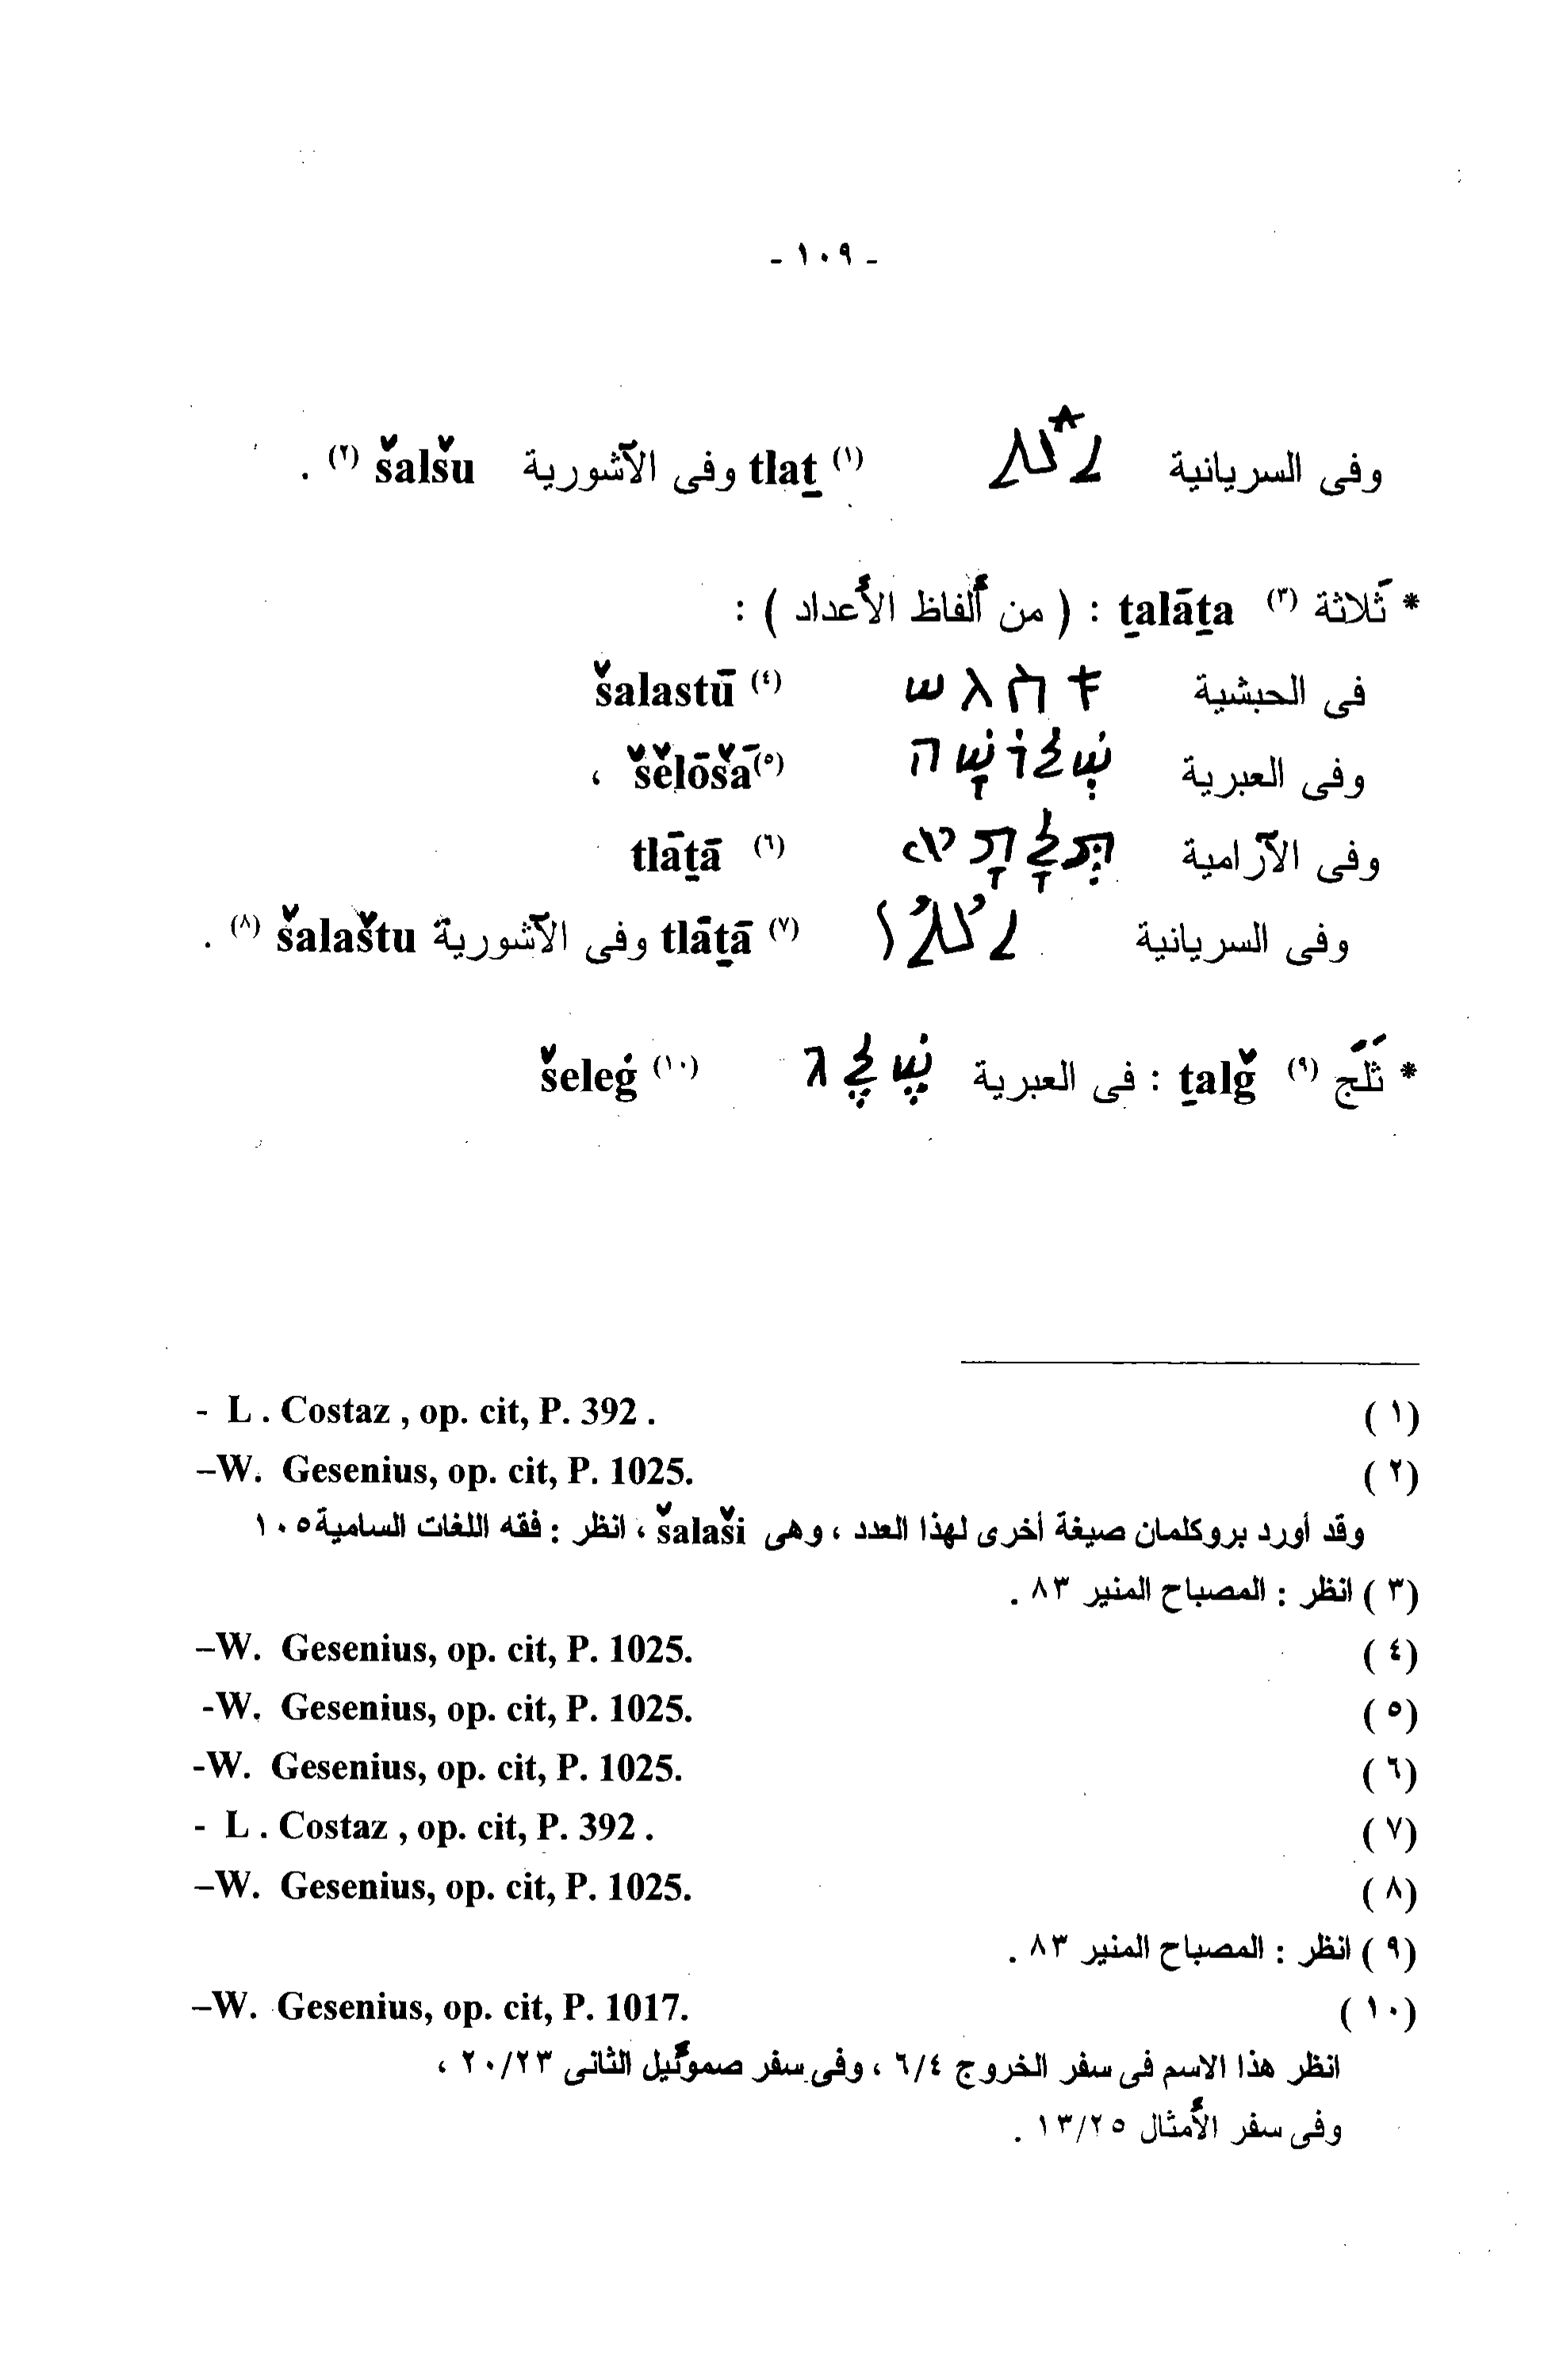 - ١٠٩ -
وفى السريانية ܬܠܬ tlaṯ (١) وفى الآشورية šalšu (٢) .
* ثَلاثة (٣) ṯalāṯa : ( من ألفاظ الأعداد ) :
فى الحبشية (٤) šalastū
وفى العبرية שְׁלֹושָׁה (٥) šĕlōšā ،
وفى الآرامية תְּלָתָא (٦) tlāṯā
وفى السريانية ܬܠܬܐ (٧) tlāṯā وفى الآشورية šalaštu (٨) .
* ثَلَج (٩) ṯalǧ : فى العبرية שֶׁלֶג (١٠) šeleġ
(١) - L . Costaz , op. cit, P. 392 .
(٢) –W. Gesenius, op. cit, P. 1025.
وقد أورد بروكلمان صيغة أخرى لهذا العدد ، وهى šalaši ، انظر : فقه اللغات السامية ١٠٥
(٣) انظر : المصباح المنير ٨٣ .
(٤) –W. Gesenius, op. cit, P. 1025.
(٥) -W. Gesenius, op. cit, P. 1025.
(٦) -W. Gesenius, op. cit, P. 1025.
(٧) - L . Costaz , op. cit, P. 392 .
(٨) –W. Gesenius, op. cit, P. 1025.
(٩) انظر : المصباح المنير ٨٣ .
(١٠) –W. Gesenius, op. cit, P. 1017.
انظر هذا الاسم فى سفر الخروج ٦/٤ ، وفى سفر صموئيل الثانى ٢٠/٢٣ ،
وفى سفر الأمثال ١٣/٢٥ .